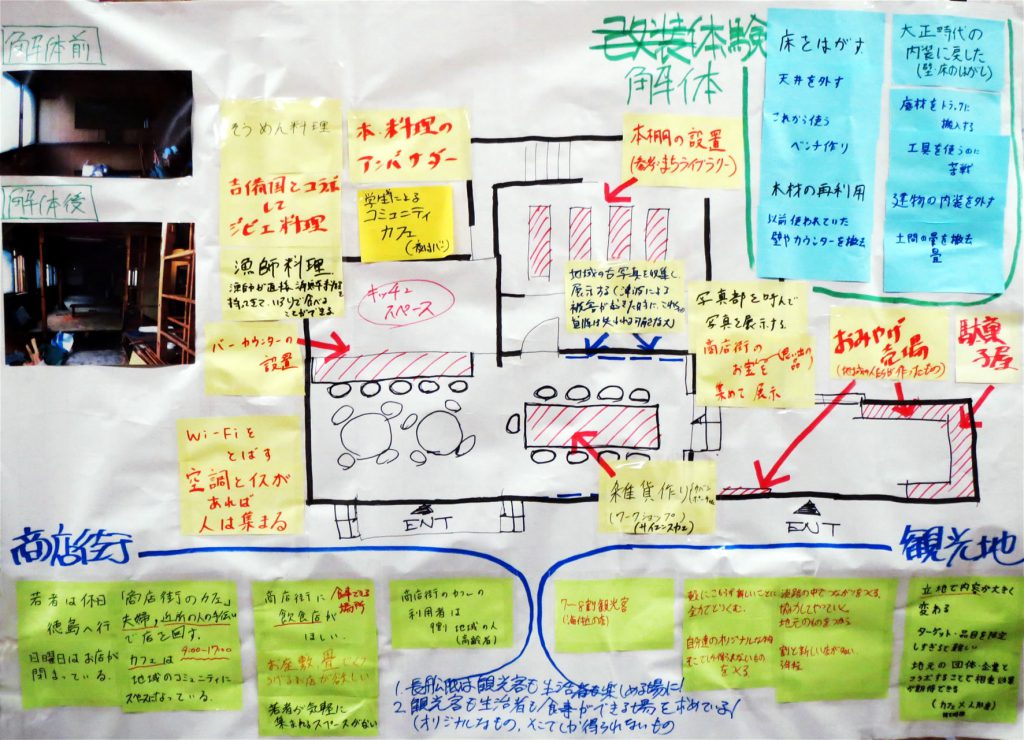 解体前
解体後
改装体験
解体
床をはがす
天井を外す
これから使う
ベンチ作り
木材の再利用
以前使われていた
壁やカウンターを撤去
大正時代の
内装に戻した
(壁・床のはがし)
廃材をトラックに
搬入する
工具を使うのに
苦戦
建物の内装を外す
土間の畳を撤去
畳
そうめん料理
吉備国とコラボ
して
ジビエ料理
漁師料理
本・料理の
アンバサダー
学生による
コミュニティ
カフェ
(夜はバー)
本棚の設置
キッチン
スペース
バーカウンターの
設置
地域の古写真を収集し
展示する
写真部を呼んで
写真を展示する
商店街の
お宝を
(思い出の品)
集めて展示
おみやげ
売場
(地域の人たちが作ったもの)
駄菓子屋
Wi-Fiを
とばす
空調とイスが
あれば
人は集まる
雑貨作り
(ワークショップ)
(サイエンスカフェ)
ENT
ENT
商店街
観光地
若者は休日
徳島へ行く
日曜日はお店が
閉まっている。
「商店街のカフェ」
夫婦、近所の人の手伝い
で店を回す。
カフェは 9:00~17:00
地域のコミュニティに
スペースになっている。
商店街に 食事できる場所
飲食店が
ほしい。
お座敷、畳でくつ
ろげるお店が欲しい
若者が気軽に
集まれるスペースがない
商店街のカフェの
利用者は
9割 地域の人
(高齢者)
7~8割観光客
全力でとりくむ。
協力してやっていく。
地元のものをつかう
割と新しい店が多い。
立地で内容が大きく
変わる
ターゲット・品目を限定
しすぎると難しい
地元の団体・企業と
コラボすることで相乗効果
が期待できる
(カフェ×人形座)
1. 観光客も生活者も楽しめる場に!
2. 観光客も生活者も食事ができる場を求めている!
(オリジナルなもの、そこでしか得られないもの